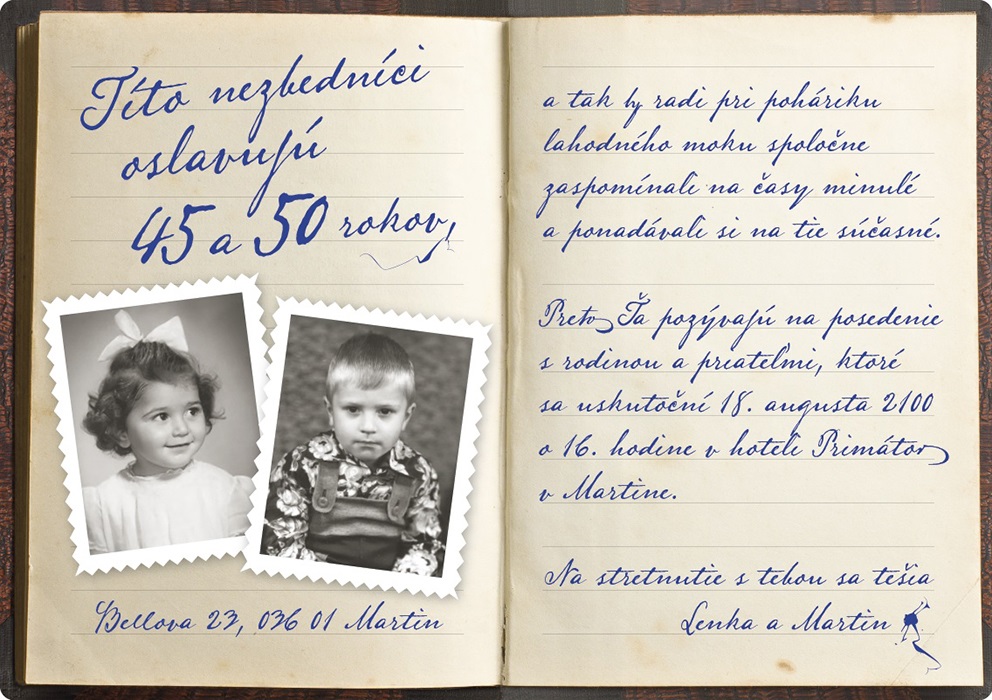 Títo nezbedníci
oslavujú
45 a 50 rokov,
Bellova 23, 036 01 Martin
a tak by radi pri poháriku
lahodného moku spoločne
zaspomínali na časy minulé
a ponadávali si na tie súčasné.
Preto Ťa pozývajú na posedenie
s rodinou a priateľmi, ktoré
sa uskutoční 18. augusta 2100
o 16. hodine v hoteli Primátor
v Martine.
Na stretnutie s tebou sa tešia
Lenka a Martin